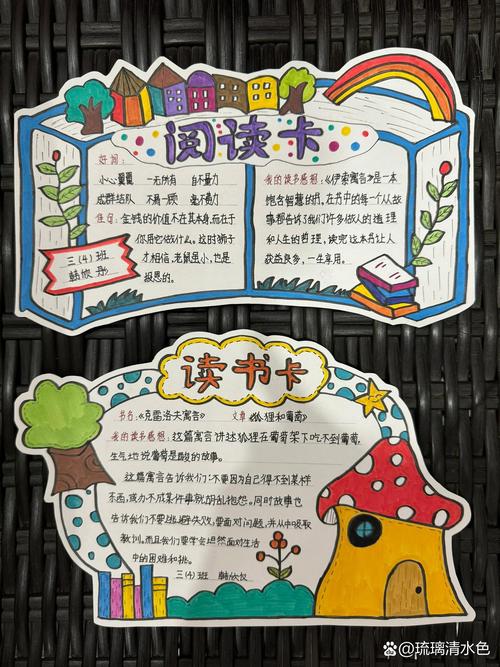 阅读卡
好词：
小心翼翼 一无所有 自不量力
成群结队 不易一顾 毫不费力
佳句：金钱的价值不在其本身，而在于
你用它做什么。这时狮子
才相信，老鼠虽小，也是
报恩的。
三（4）班
韩欣彤
我的读多感想：《伊索寓言》是一本
饱含智慧的书，在书中的每一个从故
事都告诉了我们许多做人的道理
和人生的哲理，读完这本书让人
获益良多，一生享用。
读书卡
书名：《克雷洛夫寓言》 文章《狐狸和葡萄》
我的读多感想：这篇寓言讲述狐狸在葡萄架下吃不到葡萄，
生气地说葡萄是酸的故事。
这篇寓言告诉我们：不要因为自己得不到某样
东西，或办不成某件事就胡乱抱怨。同时故事也
告诉我们不要逃避失败，要面对问题，并从中吸取
教训。而且我们要学会坦然面对生活
中的困难和挑。
三（4）班 韩欣
@琉璃清水色